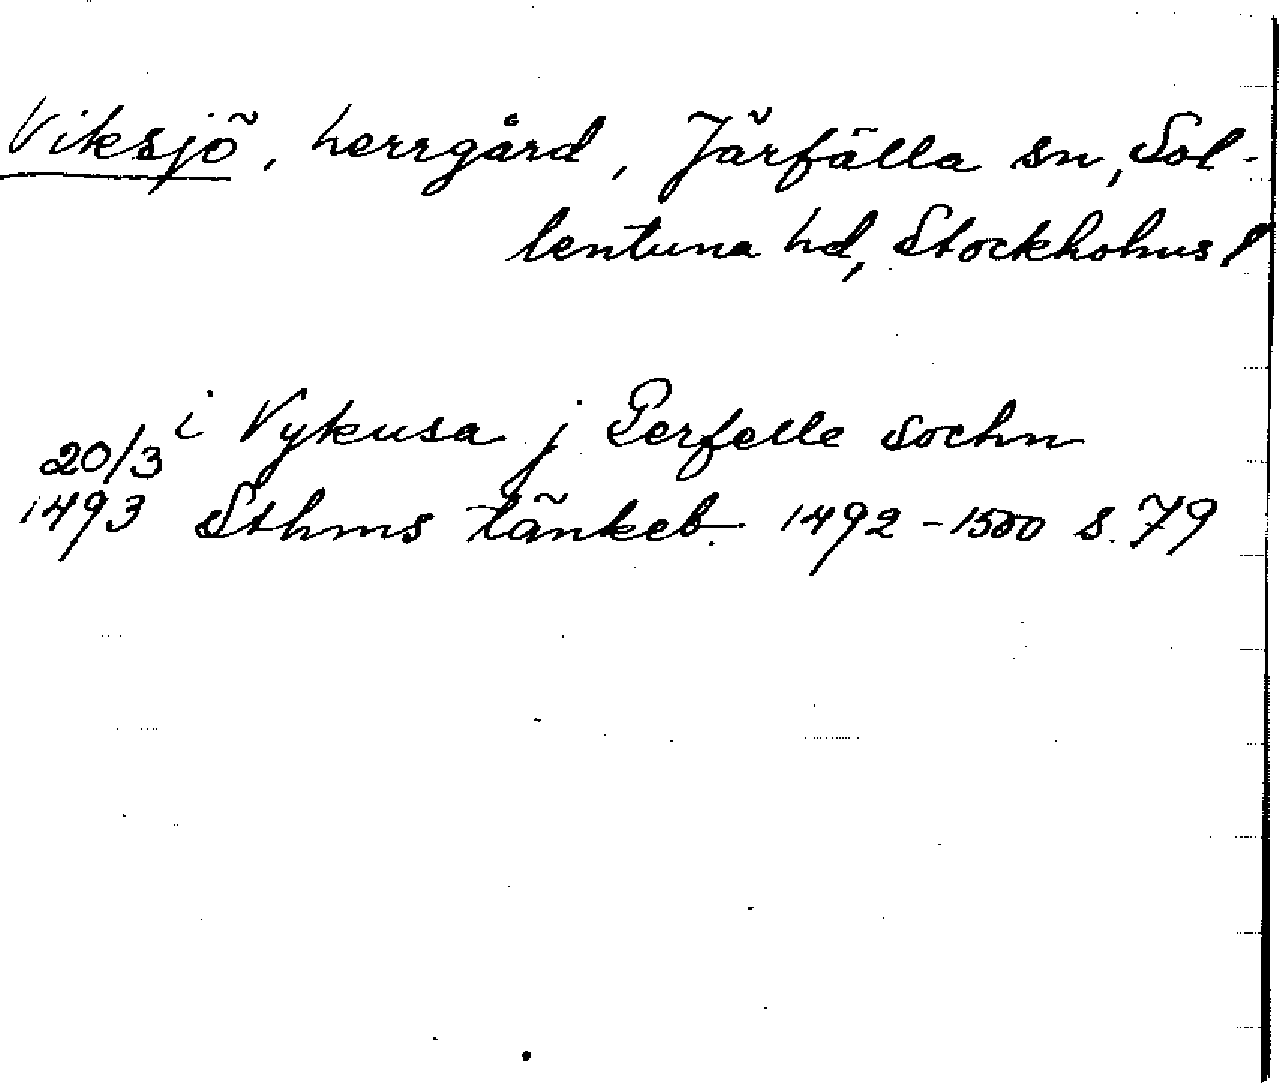 Viksjö, herrgård, Järfälla sn, Sol-
lentuna hd, Stockholms l
i Vykusa j Perfelle sochn
20/3
1493 Sthms tänkeb. 1492-1500 s. 79